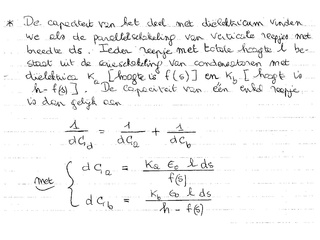 * De capaciteit van het deel met dielektricum vinden
we als de parallelschakeling van verticale reepjes met
breedte ds. Ieder reepje met totale hoogte h be-
staat uit de serieschakeling van condensatoren met
dielektrica Ka [hoogte is f(s)] en Kb [hoogte is
h-f(s)]. De capaciteit van één enkel reepje
is dan gelijk aan
1/dCd = 1/dCa + 1/dCb
met { dCa = Ka ε0 l ds / f(s)
dCb = Kb ε0 l ds / h - f(s)